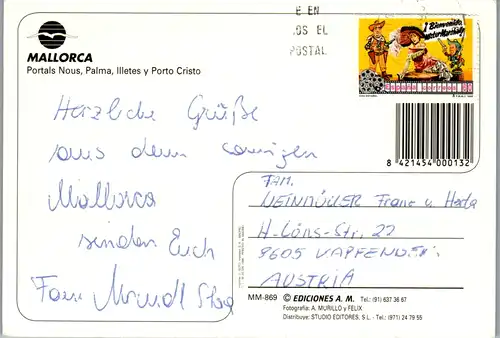 MALLORCA
Portals Nous, Palma, Illetes y Porto Cristo
E EN
OS EL
POSTAL
¡ Bienvenido,
Mister Marshall !
España correos
Herzliche Grüße
aus dem sonnigen
Mallorca
senden Euch
Fam.
8 421454 000132
FAM.
WEINMÜLLER Franz u. Heda
H-Löns-Str. 22
8605 KAPFENBERG
AUSTRIA
MM-869 © EDICIONES A. M. Tel.: (91) 637 36 67
Fotografía: A. MURILLO y FELIX
Distribuye: STUDIO EDITORES, S.L. - Tel.: (971) 24 79 55